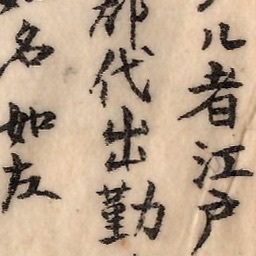 ル者江戸
郡代出勤
名如左